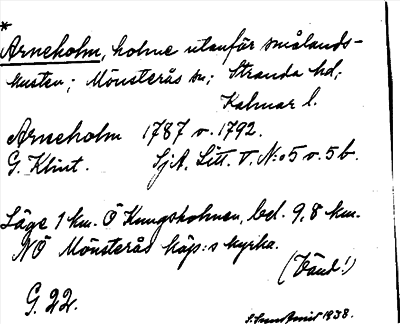 *
Arneholm, holme utanför Smålands-
kusten; Mönsterås sn; Stranda hd;
Kalmar l.
Arneholm 1787 o. 1792.
G. Klint. SjA, Litt. V. N:o 5 o. 5 b.
Läge 1 km. Ö Kungsholmen, bel. 9,8 km.
NÖ Mönsterås köp:s kyrka.
(Vänd!)
G. 22.
1938.